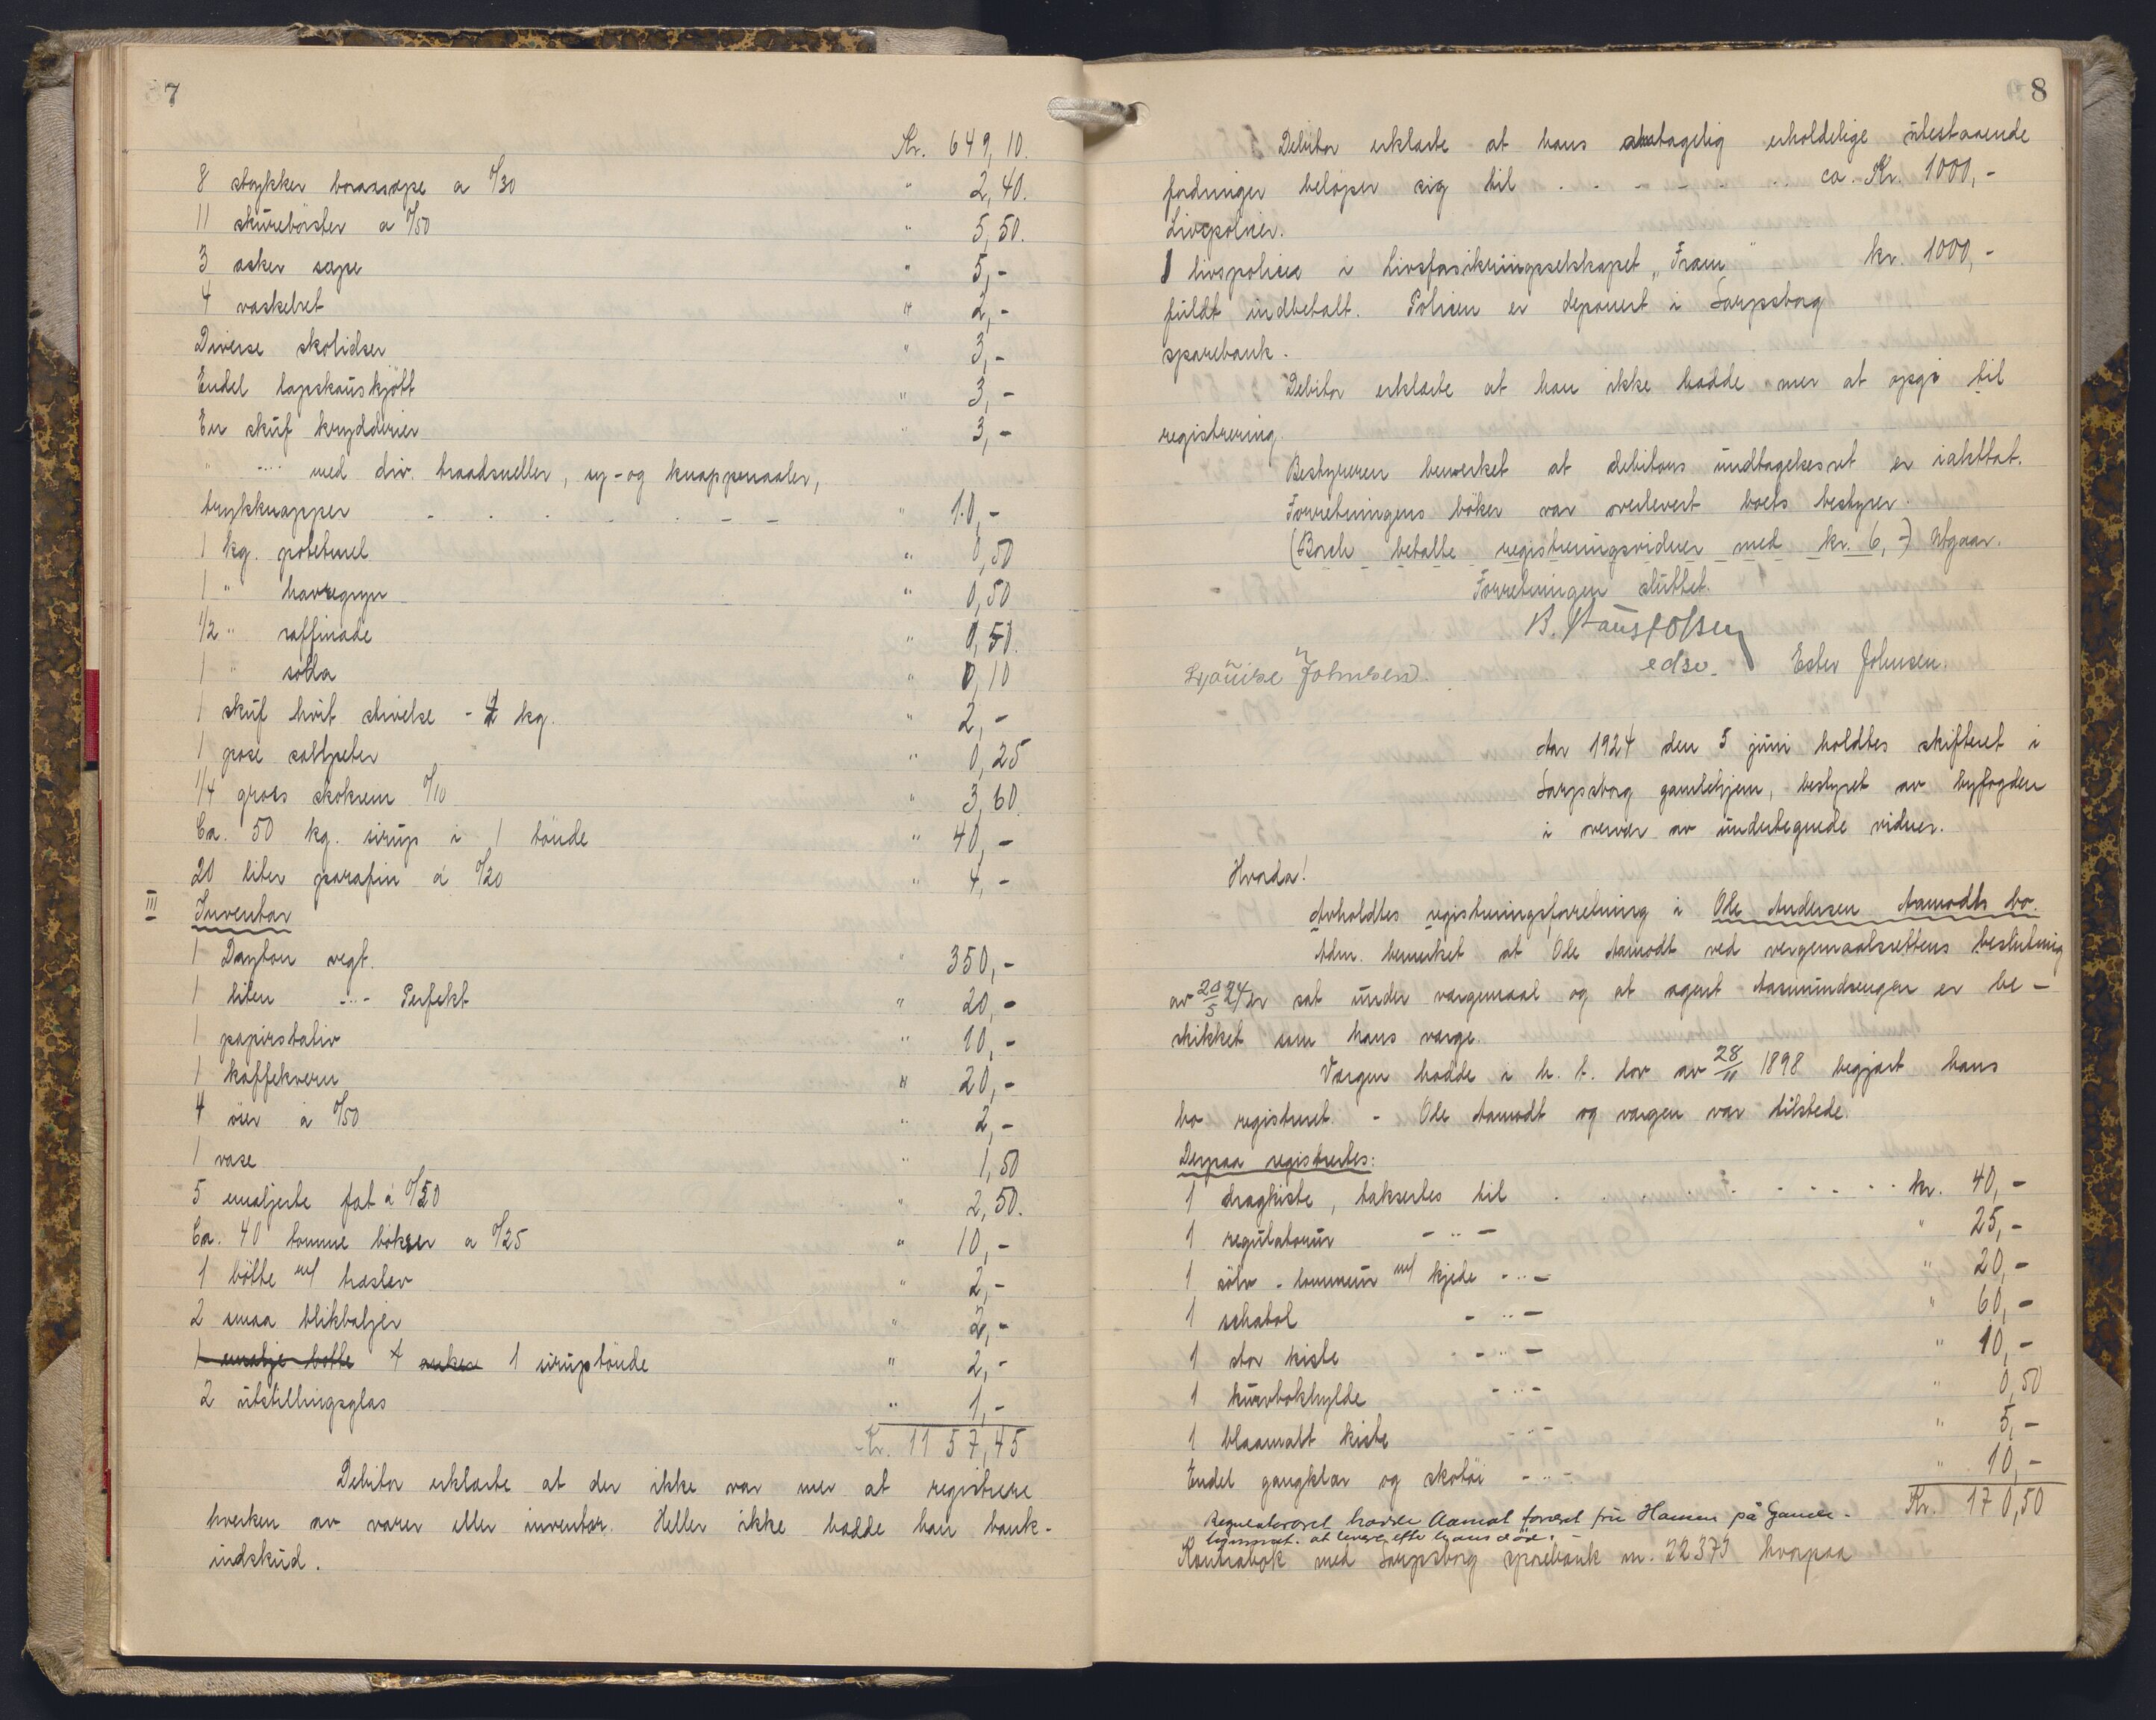 7
Kr. 649,10.
8 stykker boraxsæpe a 0/30 " 2,40.
11 skurebörster a 0/50 " 5,50.
3 æsker sæpe " 5,-
4 vaskebret " 2,-
Diverse skolidser " 3,-
Endel lapskauskjött " 3,-
En skuf krydderier " 3,-
" -..- med div. traadsneller, sy- og knappenaaler,
trykknapper - . . . . . - - " 10,-
1 kg. potetmel " 0,50
1 " havregryn " 0,50
1/2 " raffinade " 0,50.
1 " soda " 0,10
1 skuf hvit stivelse - 2 kg. " 2,-
1 pose saltpeter " 0,25
1/4 gross skokrem 0/10 " 3,60.
Ca. 50 kg. sirup i 1 tönde " 40,-
20 liter parafin á 0/20 " 4,-
III Inventar
1 Dayton vegt. " 350,-
1 liten -..- Perfekt " 20,-
1 papirstativ " 10,-
1 kaffekvern " 20,-
4 öser á 0/50 " 2,-
1 vase " 1,50
5 emaljerte fat á 0/50 " 2,50.
Ca. 40 tomme bökser a 0/25 " 10,-
1 bötte m/ træslev " 2,-
2 smaa blikbaljer " 2,-
1 emalje bötte + 1 siruptönde " 2,-
2 utstillingsglas " 1,-
Kr. 1157,45
Debitor erklærte at der ikke var mer at registrere
hverken av varer eller inventar. Heller ikke hadde han bank-
indskud.
8
Debitor erklærte at hans antagelig erholdelige utestaaende
fordringer belöper sig til . . - - - . . ca. Kr. 1000,-
Livspoliser.
1 livspolise i Livsforsikringsselskapet „Fram" kr. 1000,-
fuldt indbetalt. Polisen er deponert i Sarpsborg
sparebank.
Debitor erklærte at han ikke hadde mer at opgi til
registrering.
Bestyreren bemerket at debitors undtagelsesret er iakttat.
Forretningens böker var overlevert boets bestyrer.
(Borch betalte registreringsvidner med kr. 6,-) Utgaar.
Forretningen sluttet.
edsv. Ester Johnsen.
Johnsen.
Aar 1924 den 5 juni holdtes skifteret i
Sarpsborg gamlehjem, bestyret av byfogden
i overvær av undertegnede vidner.
Hvorda!
Avholdtes registreringsforretning i Ole Andersen Aamodts bo.
Adm. bemerket at Ole Aamodt ved vergemaalsrettens beslutning
av 20/5 24 er sat under vergemaal og at agent Aasmundsengen er be-
skikket som hans værge.
Værgen hadde i h. t. lov av 28/11 1898 begjært hans
bo registreret. - Ole Aamodt og værgen var tilstede.
Derpaa registrertes:
1 dragkiste, taksertes til . . . . . . - - . . kr. 40,-
1 regulatorur -..- " 25,-
1 sölv - lommeur m/ kjede -..- " 20,-
1 schatol -..- " 60,-
1 stor kiste -..- " 10,-
1 kurvbokhylde -..- " 0,50
1 blaamalt kiste -..- " 5,-
Endel gangklær og skotöi -..- " 10,-
Kr. 170,50
Regulatoruret hadde Aamot foræret fru Hansen på Gamle-
hjemmet. at levere efter hans död. -
Kontrabok med Sarpsborg sparebank nr. 22373 hvorpaa